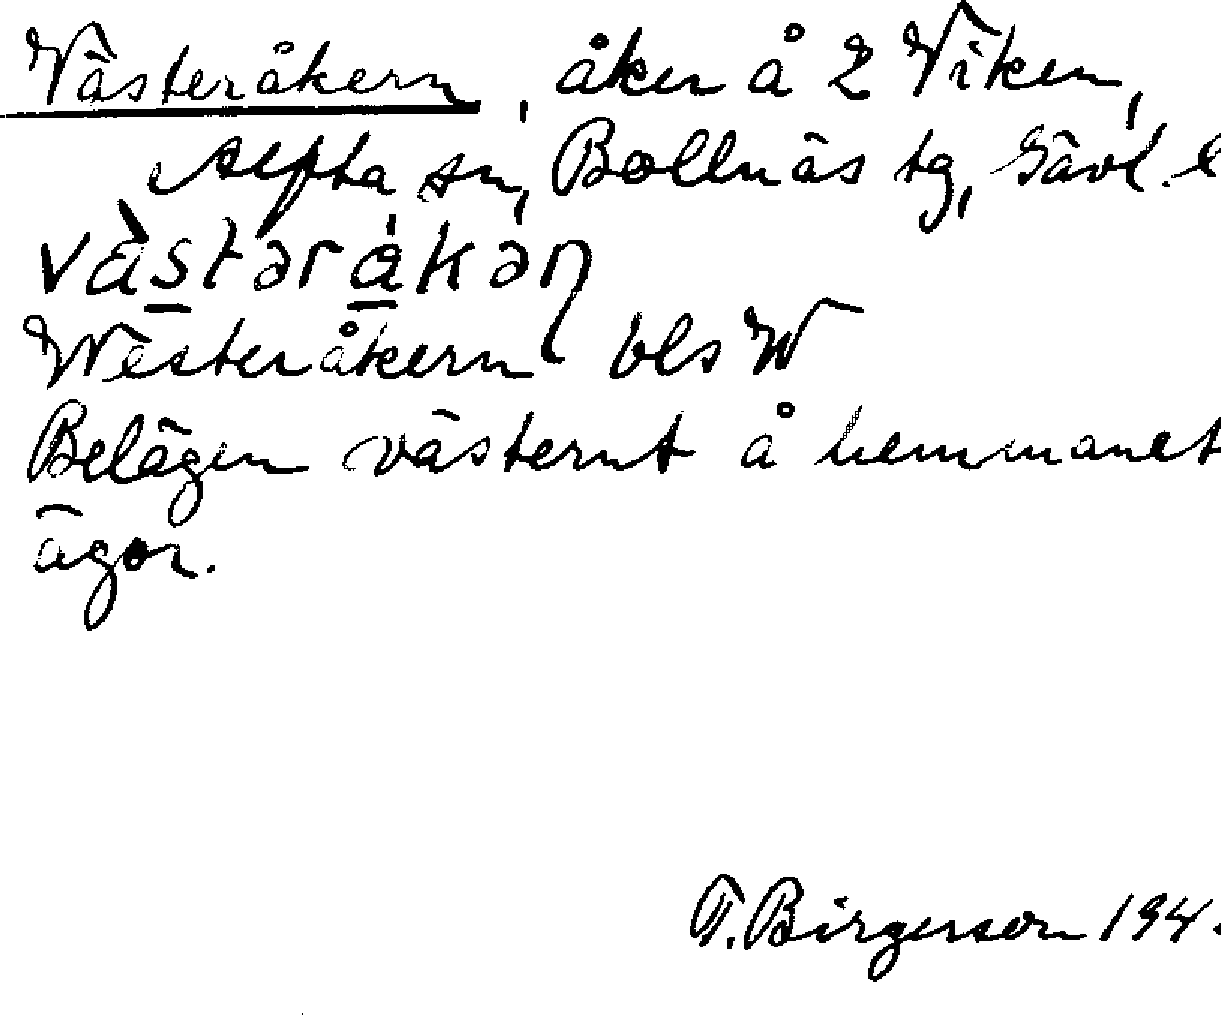 Västeråkern, åker å 2 Viken,
Alfta sn, Bollnäs tg, Gävl. l
västəråkəṇ
Westeråkern bls W
Belägen västernt å hemmanet
ägor.
T. Birgerson 194